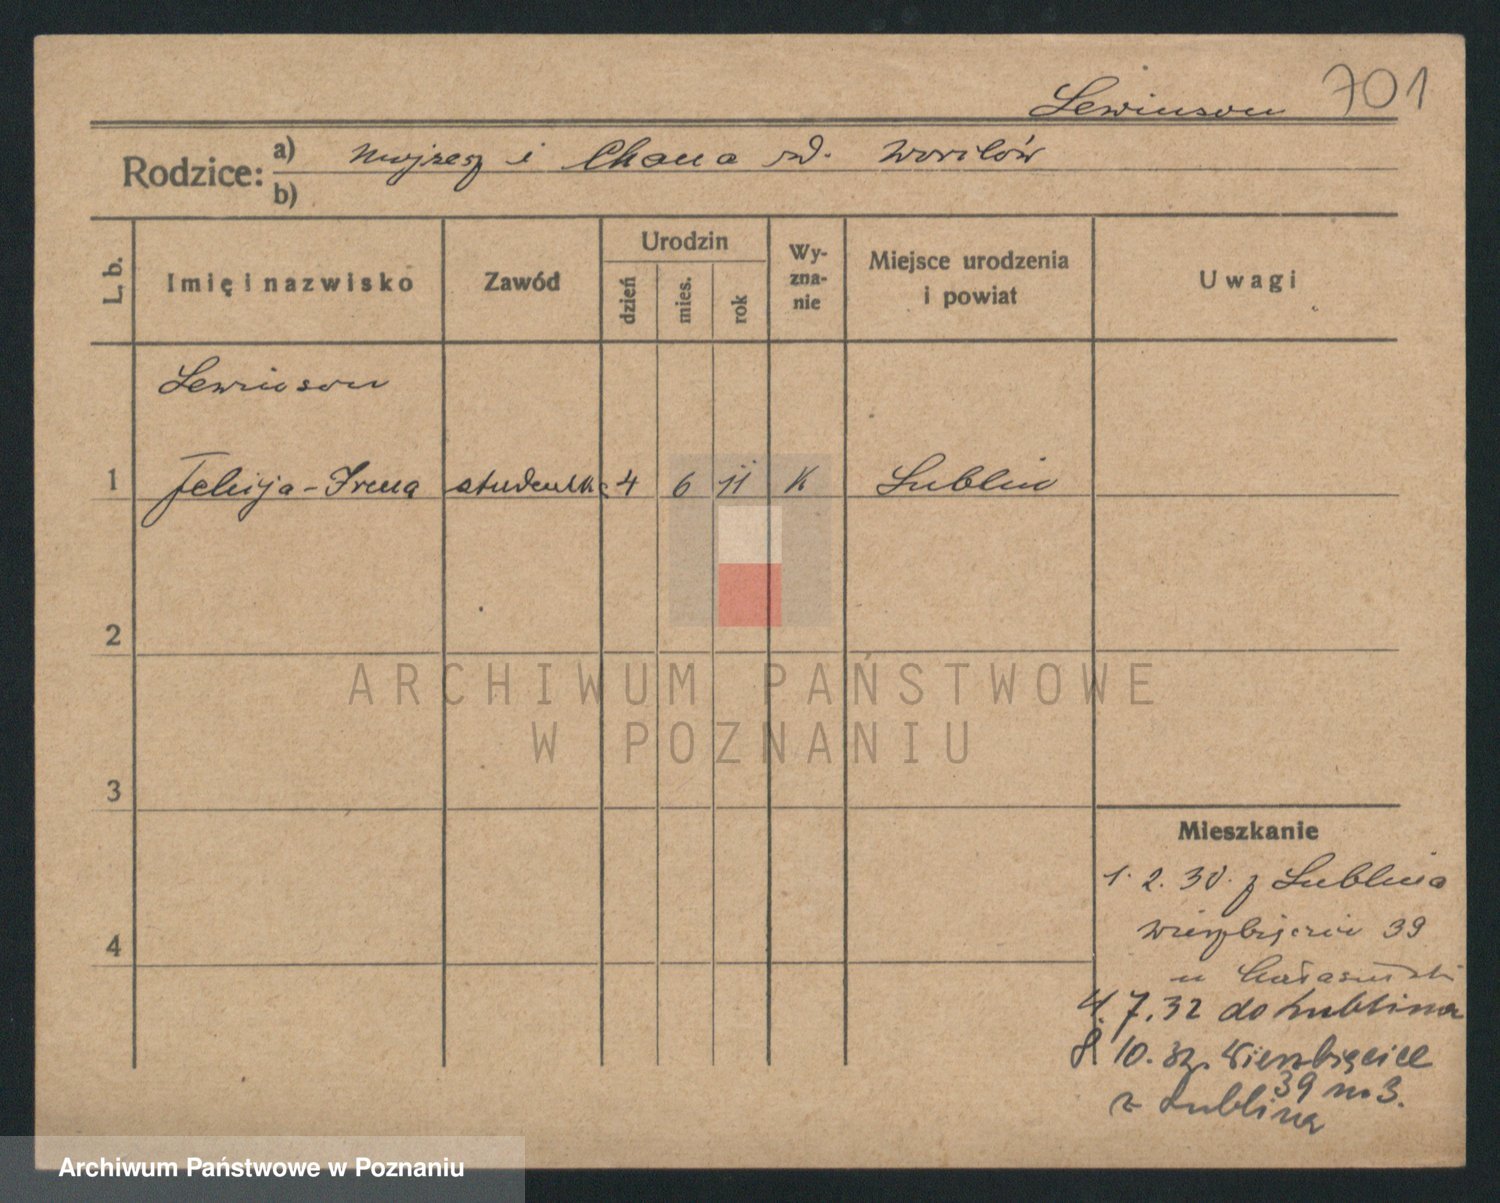 Lewinson 701
Rodzice: a) Mojżesz i Chana zd. Worilów
b)
L. b. Imię i nazwisko Zawód Urodzin dzień mies. rok Wy-zna-nie Miejsce urodzenia i powiat Uwagi
Lewinson
1 Felicja-Irena studentka 4 6 11 K Lublin
2
3
4
Mieszkanie
1. 2. 30. z Lublina
Wierzbięcice 39
u
4. 7. 32 do Lublina
8. 10. 32. Wierzbięcice
39 m 3.
z Lublina
ARCHIWUM PAŃSTWOWE
W POZNANIU
Archiwum Państwowe w Poznaniu